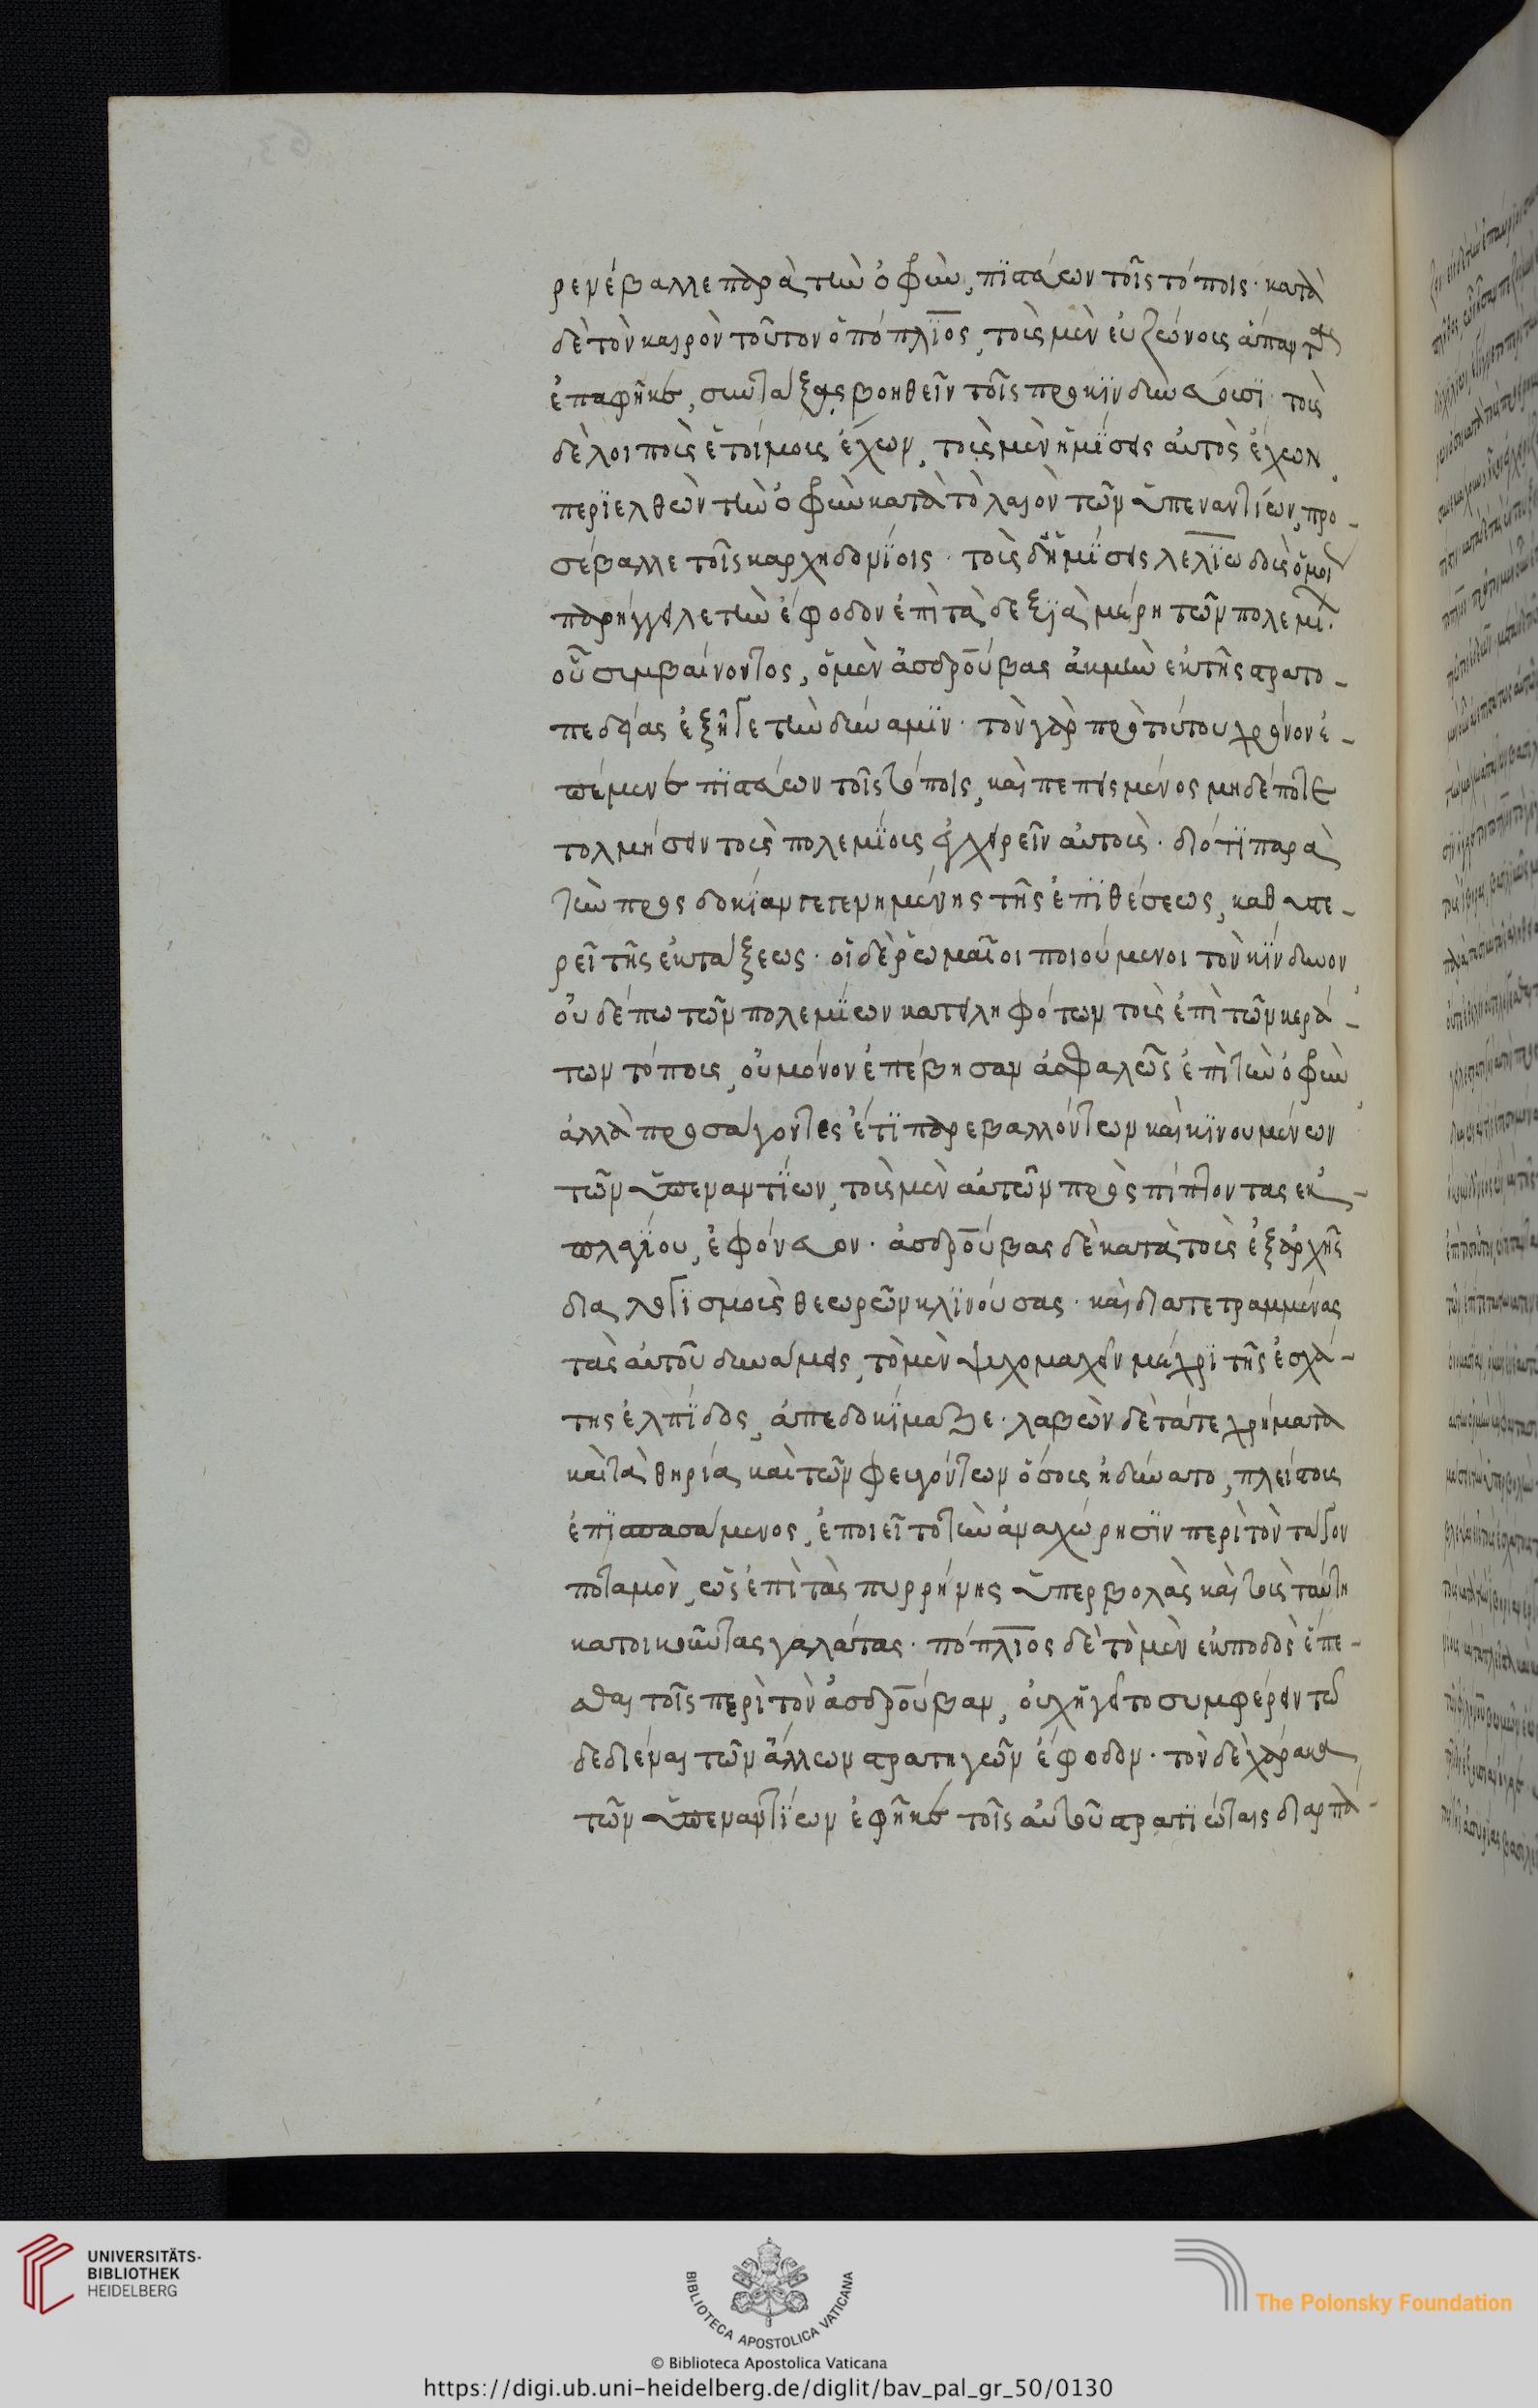 ρενέβαλλε παρὰ τὴν ὀφρὺν, πϊστεύων τοῖς τόποις· κατὰ
δὲ τὸν καιρὸν τοῦτον ὁ πόπλϊος, τοὺς μὲν εὐζώνους ἅπαντας
ἐπαφῆκε, συντάξας βοηθεῖν τοῖς προκϊνδυνεύουσϊ· τοὺς
δὲ λοιποὺς ἑτοίμους ἔχων, τοὺς μὲν ἡμΐσεις αὐτὸς ἔχων
περϊελθὼν τὴν ὀφρὺν κατὰ τὸ λαιὸν τῶν ὑπεναντίων, προ-
σέβαλλε τοῖς καρχηδονΐοις· τοὺς δ' ἡμΐσεις λελΐω δοὺς ὁμοί
παρήγγειλε τὴν ἔφοδον ἐπὶ τὰ δεξϊὰ μέρη τῶν πολεμΐ.
οὗ συμβαίνοντος, ὁ μὲν ἀσδρούβας ἀκμὴν ἐκ τῆς στρατο-
πεδείας ἐξῆγε τὴν δύναμϊν· τὸν γὰρ πρὸ τούτου χρόνον ἐ-
πέμενε πϊστεύων τοῖς τόποις, καὶ πεπεισμένος μηδέποτε
τολμήσειν τοὺς πολεμΐους ἐγχειρεῖν αὐτοῖς· διότϊ παρὰ
τὴν προσδοκΐαν γεγενημένης τῆς ἐπϊθέσεως, καθυστε-
ρεῖ τῆς ἐκτάξεως· οἱ δὲ ῥωμαῖοι ποιούμενοι τὸν κΐνδυνον
οὐδέπω τῶν πολεμΐων κατειληφότων τοὺς ἐπὶ τῶν κερά-
των τόπους, οὐ μόνον ἐπέβησαν ἀσφαλῶς ἐπὶ τὴν ὀφρὺν
ἀλλὰ προσάγοντες ἔτϊ παρεβαλλόντων καὶ κϊνουμένων
τῶν ὑπεναντΐων, τοὺς μὲν αὐτῶν προσπίπτοντας ἐκ
πλαγΐου, ἐφόνευον· ἀσδρούβας δὲ κατὰ τοὺς ἐξ ἀρχῆς
διαλογϊσμοὺς θεωρῶν κλϊνούσας· καὶ διατετραμμένας
τὰς αὐτοῦ δυνάμεις, τὸ μὲν ψυχομαχεῖν μέχρϊ τῆς ἐσχά-
της ἐλπΐδος, ἀπεδοκΐμαζε· λαβὼν δὲ τά τε χρήματα
καὶ τὰ θηρία, καὶ τῶν φευγόντων ὅσους ἠδύνατο, πλείστους
ἐπϊσπασάμενος, ἐποιεῖτο τὴν ἀναχώρησϊν περὶ τὸν τάγον
ποταμὸν, ὡς ἐπὶ τὰς πυρρήνης ὑπερβολὰς καὶ τοὺς ταύτη
κατοικοῦντας γαλάτας· πόπλϊος δὲ τὸ μὲν ἐκ ποδὸς ἕπε-
σθαι τοῖς περὶ τὸν ἀσδρούβαν, οὐχ ἡγεῖτο συμφέρειν τῶ
δεδιέναι τῶν ἄλλων στρατηγῶν ἔφοδον· τὸν δὲ χάρακα
τῶν ὑπεναντΐων ἐφῆκε τοῖς αὐτοῦ στρατϊώταις διαρπά-
UNIVERSITÄTS-
BIBLIOTHEK
HEIDELBERG
BIBLIOTECA APOSTOLICA VATICANA
The Polonsky Foundation
© Biblioteca Apostolica Vaticana
https://digi.ub.uni-heidelberg.de/diglit/bav_pal_gr_50/0130